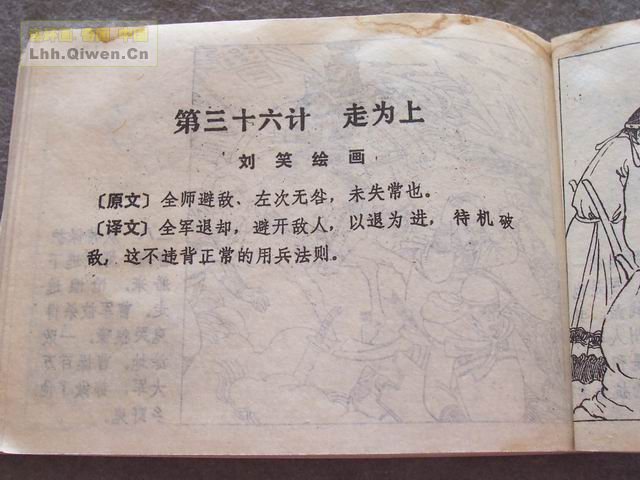 Lhh.Qiwen.Cn
第三十六计 走为上
刘笑绘画
〔原文〕全师避敌、左次无咎，未失常也。
〔译文〕全军退却，避开敌人，以退为进，待机破
敌，这不违背正常的用兵法则。